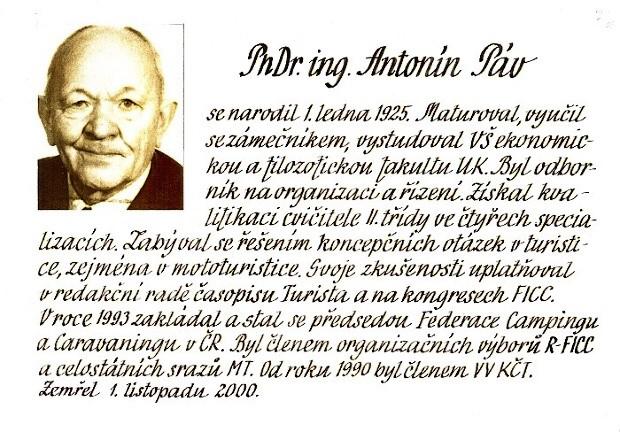 PhDr. ing. Antonín Páv
se narodil 1. ledna 1925. Maturoval, vyučil
se zámečníkem, vystudoval VŠ ekonomic-
kou a filozofickou fakultu UK. Byl odbor-
ník na organizaci a řízení. Získal kva-
lifikaci cvičitele II. třídy ve čtyřech specia-
lizacích. Zabýval se řešením koncepčních otázek v turisti-
ce, zejména v mototuristice. Svoje zkušenosti uplatňoval
v redakční radě časopisu Turista a na kongresech FICC.
V roce 1993 zakládal a stal se předsedou Federace Campingu
a Caravaningu v ČR. Byl členem organizačních výborů R-FICC
a celostátních srazů MT. Od roku 1990 byl členem VV KČT.
Zemřel 1. listopadu 2000.